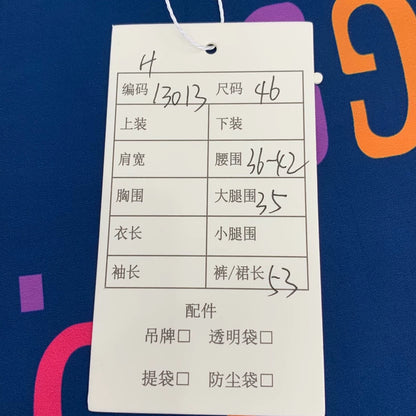 H
编码 13013 尺码 46
上装 下装
肩宽 腰围 36-42
胸围 大腿围 35
衣长 小腿围
袖长 裤/裙长 53
配件
吊牌□ 透明袋□
提袋□ 防尘袋□
G